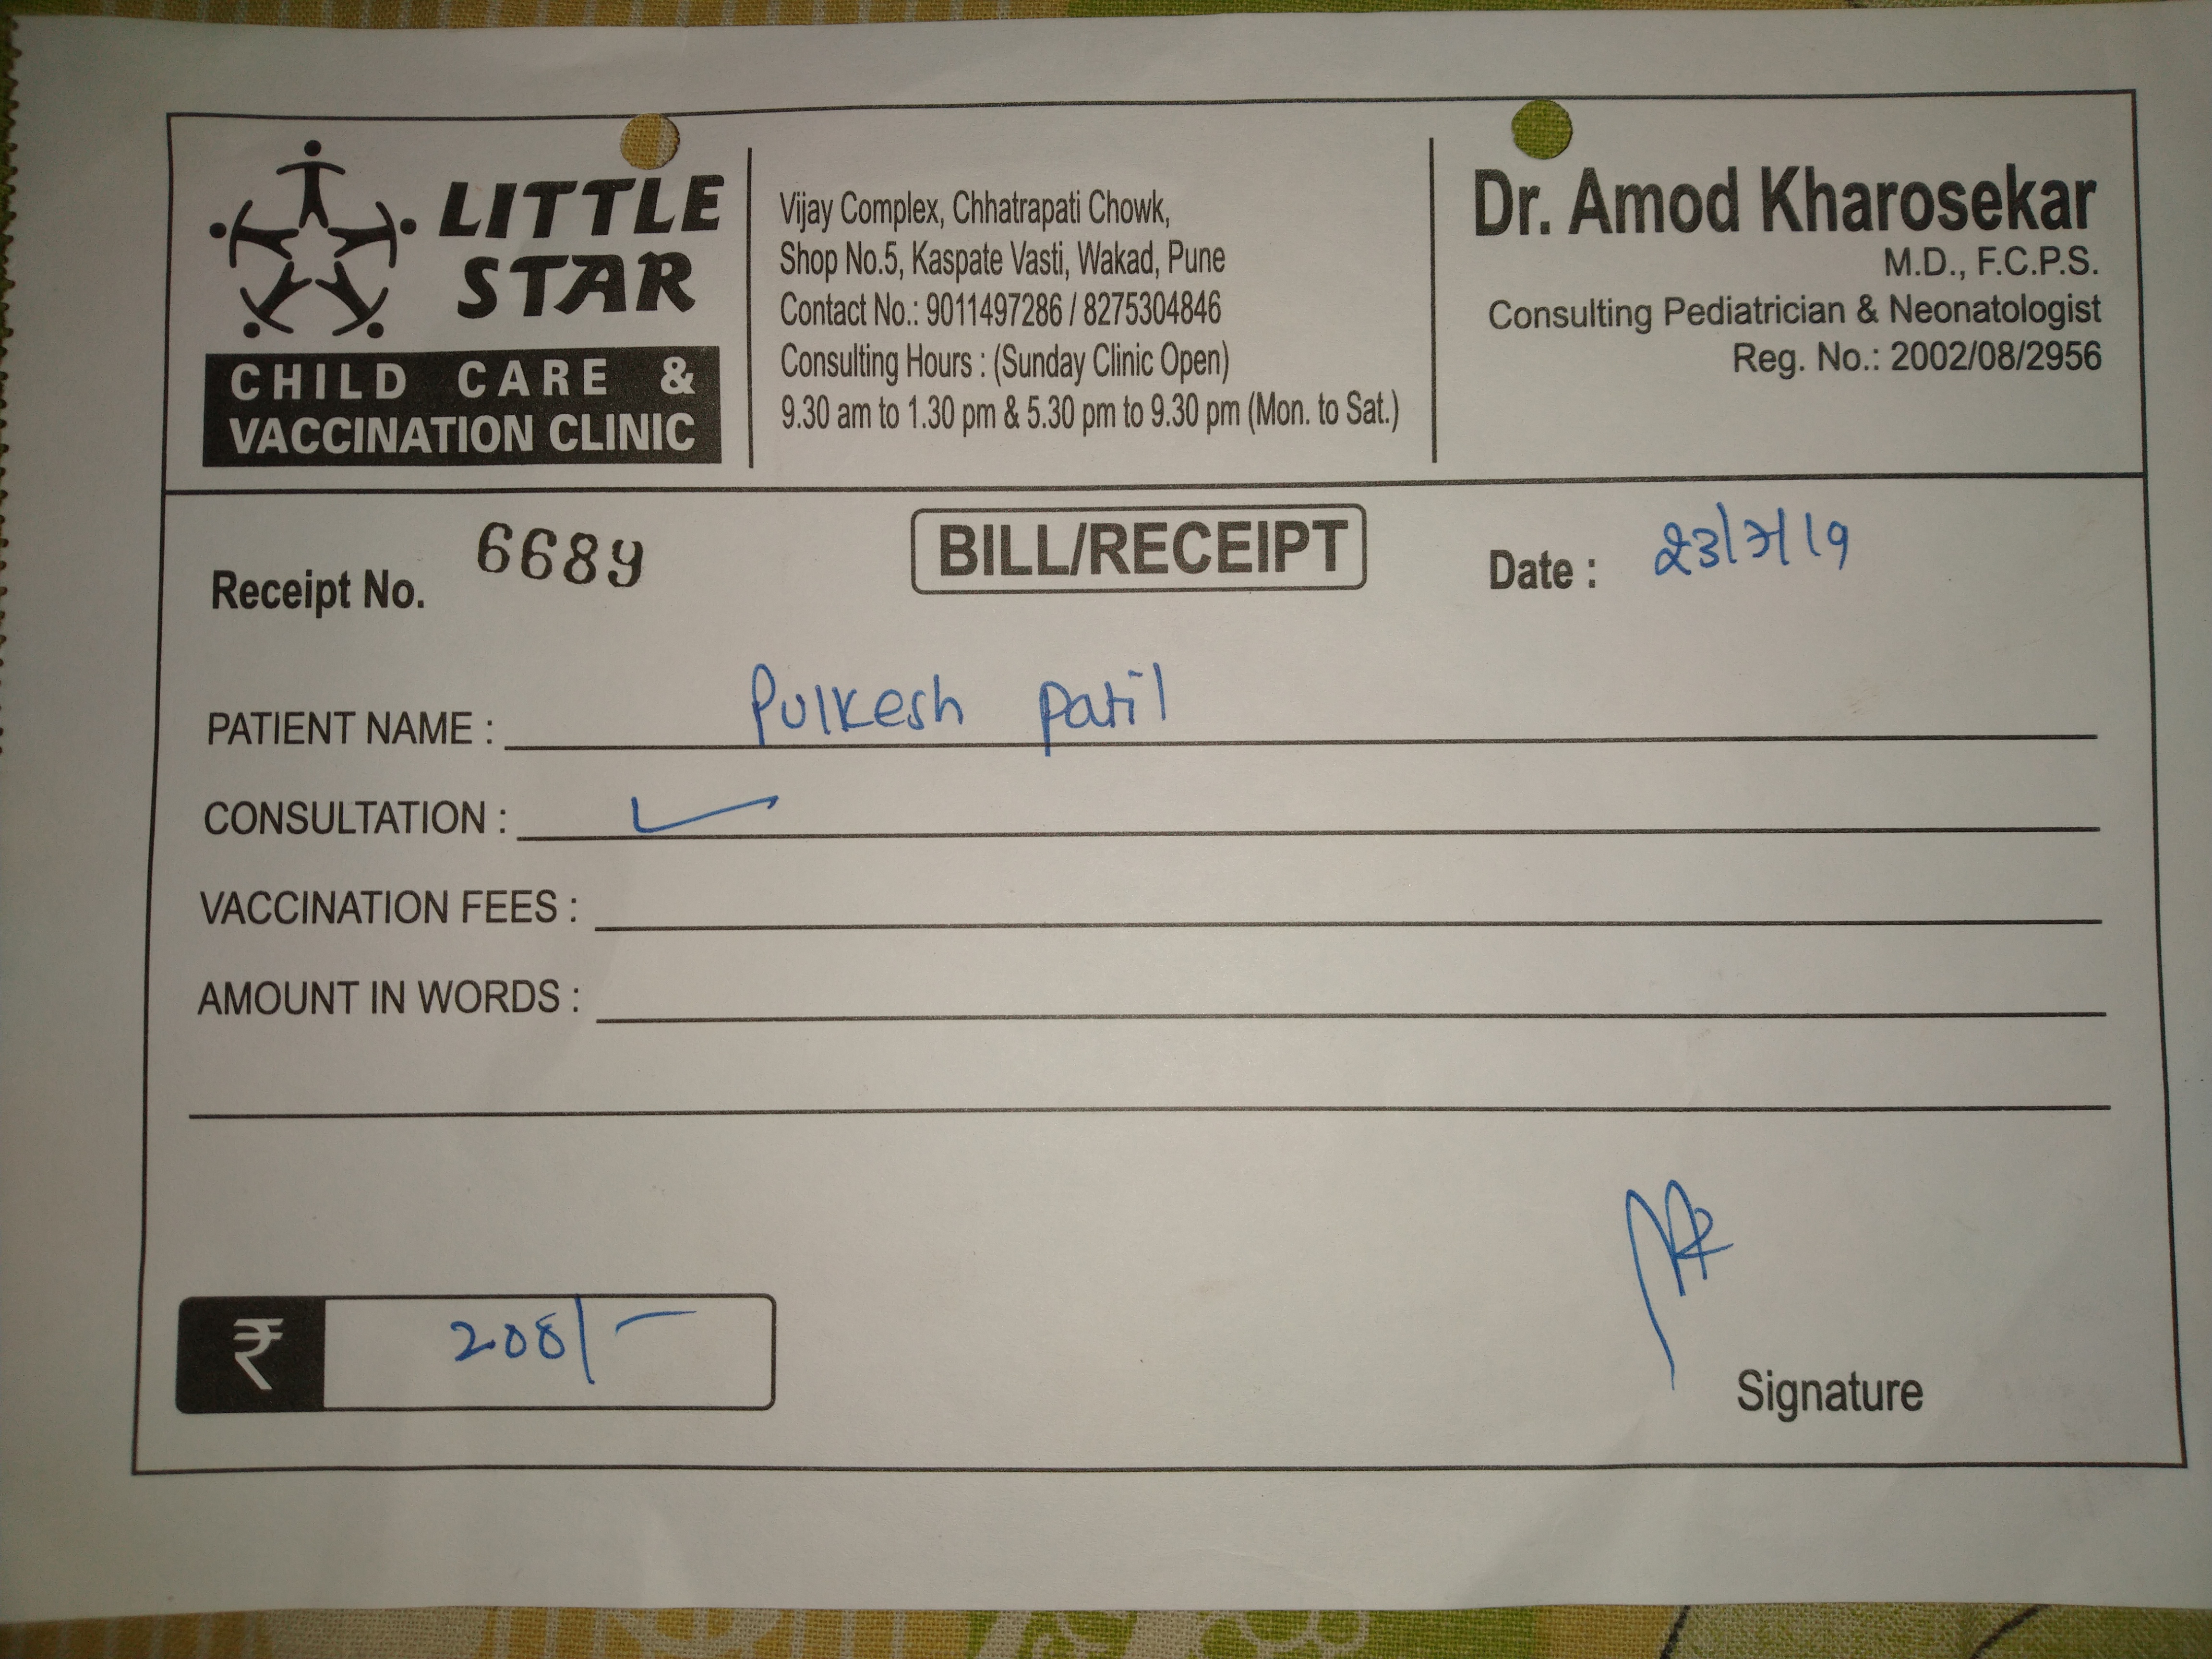 LITTLE STAR
CHILD CARE &
VACCINATION CLINIC
Vijay Complex, Chhatrapati Chowk,
Shop No.5, Kaspate Vasti, Wakad, Pune
Contact No.: 9011497286 / 8275304846
Consulting Hours : (Sunday Clinic Open)
9.30 am to 1.30 pm & 5.30 pm to 9.30 pm (Mon. to Sat.)
Dr. Amod Kharosekar
M.D., F.C.P.S.
Consulting Pediatrician & Neonatologist
Reg. No.: 2002/08/2956
Receipt No. 6689 BILL/RECEIPT Date : 23/7/19
PATIENT NAME : Pulkesh patil
CONSULTATION : ✓
VACCINATION FEES :
AMOUNT IN WORDS :
₹
Signature